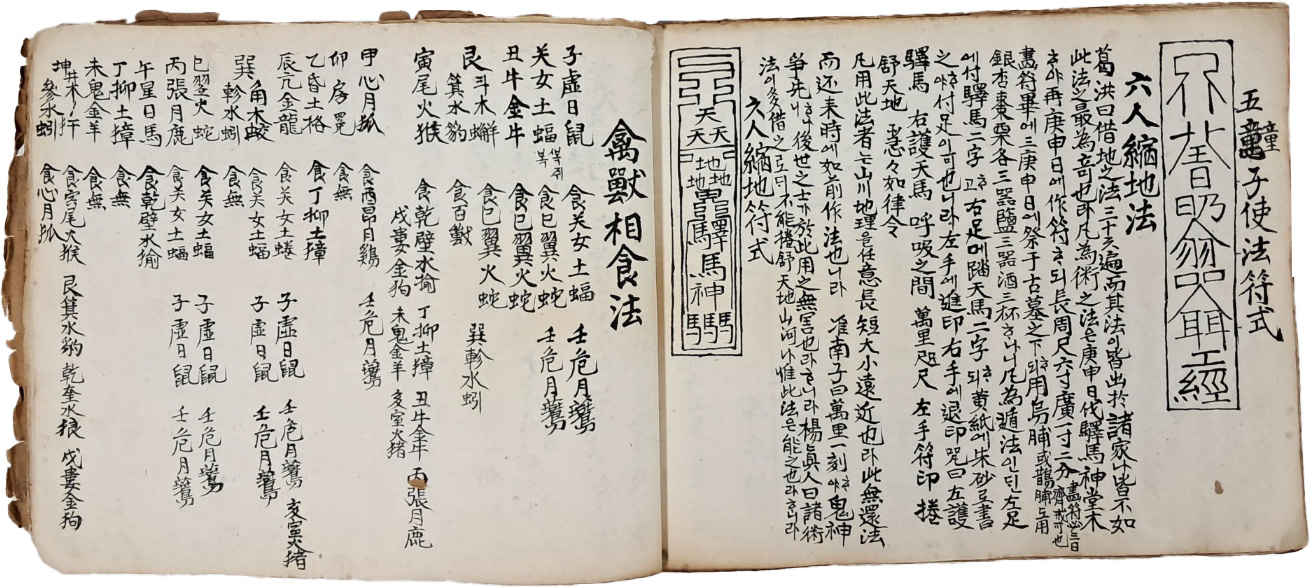 五童子使法符式
六人縮地法
葛洪曰借地之法三十六遍而其法이皆出於諸家나皆不如
此法之最為奇也凡為術之法은庚申日伐驛馬神堂木
하야再庚申日에作符하되長周尺六寸廣一寸二分畫符必三日齋戒可也
畫符畢에三庚申日에祭于古墓之下하되用烏脯或鵲脯도用
銀杏棗栗各三器鹽三器酒三杯하나니凡為遁法인딘左足
에付驛馬二字고右足에踏天馬二字하되黃紙에朱砂로書
之하야付足이可也니라左手에進印右手에退印咒曰左護
驛馬 右護天馬 呼吸之間 萬里咫尺 左手符印捲
舒天地 急々如律令
凡用此法者는山川地理을任意長短大小遠近也라此無還法
而还來時에如前作法也니라 准南子曰萬里一刻하야鬼神
爭先하야後世之士가於此用之無害也라하니라楊眞人曰諸術
法이多借之로되不能捲舒天地山河나惟此法은能之也라하니라
六人縮地符式
天天天地地地驛馬神
禽獸相食法
子虛日鼠 食关女土蝠 壬危月鷰
关女土蝠 박쥐 食巳翼火蛇 壬危月鷰
丑牛金牛 食巳翼火蛇
斗木蠏 食巳翼火蛇 巽軫水蚓
艮箕水豹 食百獸
寅尾火猴 食乾壁水㺄 丁抑土獐 丑牛金牛 丙張月鹿
戊婁金狗 未鬼金羊 亥室火猪
甲心月狐 食酉昂日鷄 壬危月鷰
卯房兎 食無
乙昏土格 食丁抑土獐
辰亢金龍 食关女土蝠 子虛日鼠 壬危月鷰 亥室火猪
巽角木蛟 食关女土蝠 子虛日鼠 壬危月鷰
軫水蚓 食無
巳翌火蛇 食关女土蝠 子虛日鼠 壬危月鷰
丙張月鹿 食关女土蝠 子虛日鼠 壬危月鷰
午星日馬 食乾壁水㺄
丁抑土獐 食無
未鬼金羊 食無
坤井木犴 食寅尾火猴 艮箕水豹 乾奎水狼 戊婁金狗
參水蚓 食心月狐